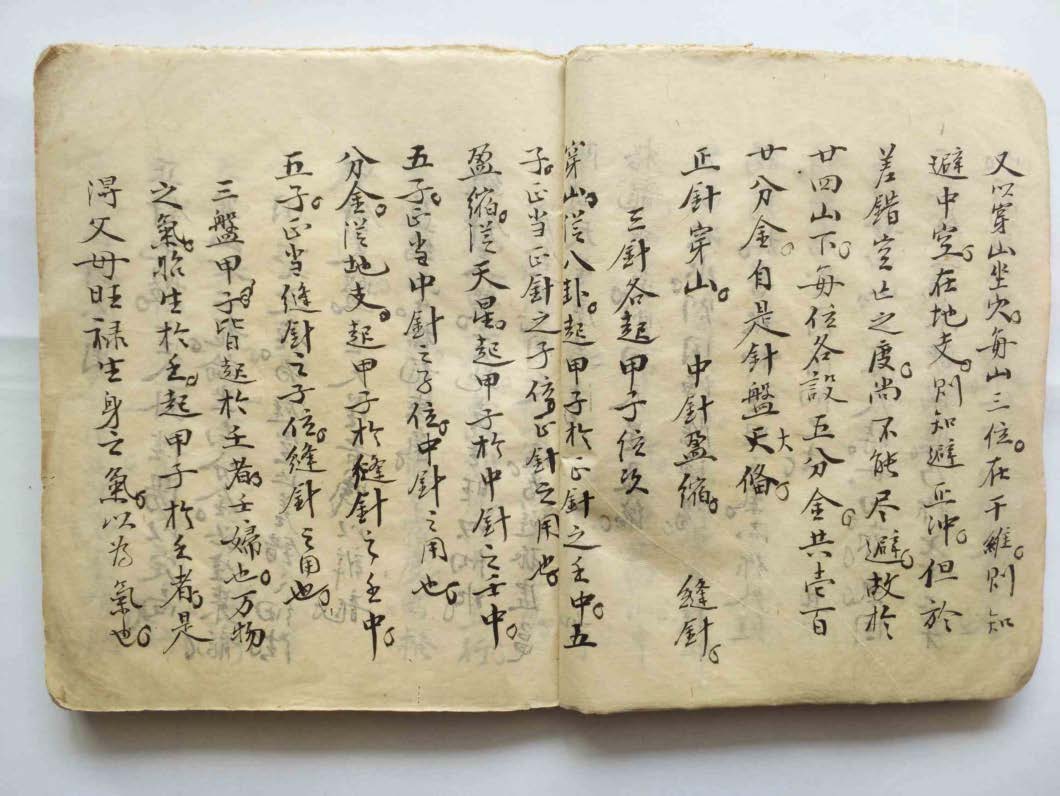 又以穿山坐穴。每山三位。在干維。則知
避中空。在地支。則知避正冲。但於
差錯空亡之度。尚不能尽避。故於
廿四山下。每位各設五分金。共壹百
廿分金。自是針盤天大俻。
正針穿山。 中針盈縮。 縫針。
三針各起甲子位攷
穿山。從八卦。起甲子於正針之壬中。五
子。正当正針之子位。正針之用也。
盈縮。從天星。起甲子於中針之壬中。
五子。正当中針之子位。中針之用也。
分金。從地支。起甲子於縫針之壬中。
五子。正当縫針之子位。縫針之用也。
三盤甲子皆起於壬者。壬婦也。万物
之氣。胎生於壬。起甲子於壬者。是
淂父母旺禄生身之氣。以為氣也。